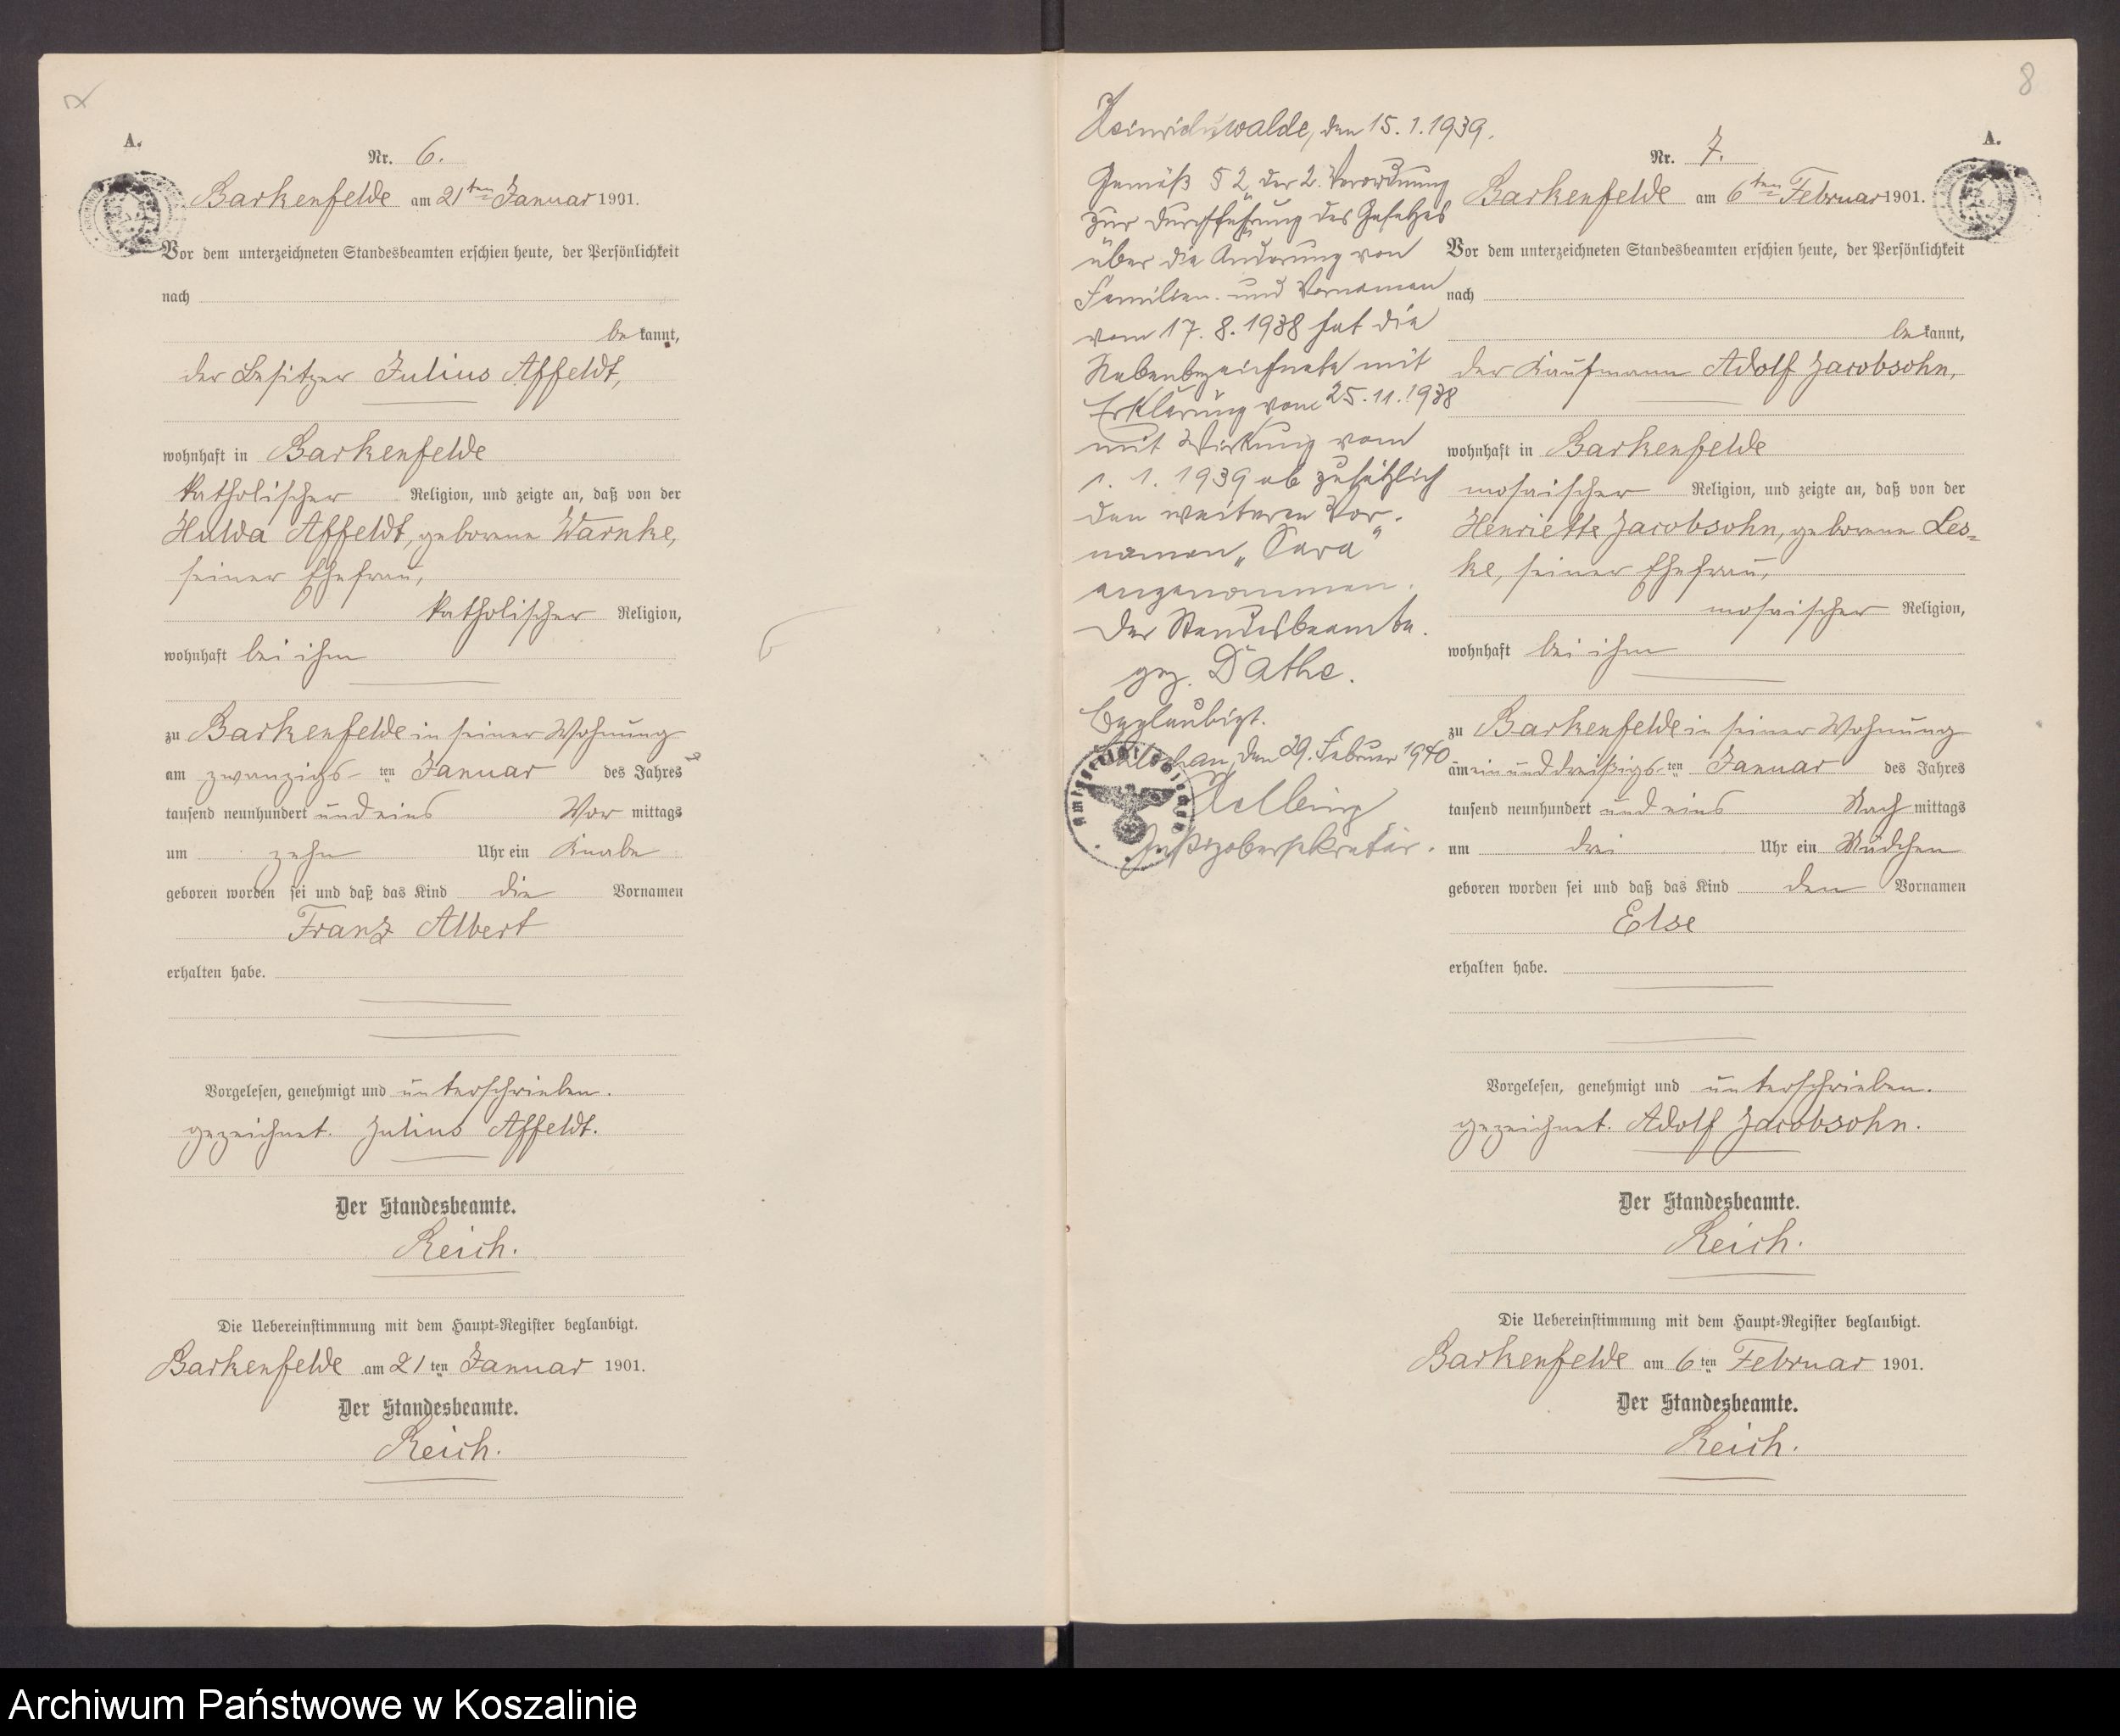 A.
Nr. 6.
Barkenfelde am 21ten Januar 1901.
Vor dem unterzeichneten Standesbeamten erschien heute, der Persönlichkeit
nach
be kannt,
der Besitzer Julius Affeldt,
wohnhaft in Barkenfelde
katholischer Religion, und zeigte an, daß von der
Hulda Affeldt, geborene Warnke,
seiner Ehefrau,
katholischer Religion,
wohnhaft bei ihm
zu Barkenfelde in seiner Wohnung
am zwanzigs- ten Januar des Jahres
tausend neunhundert und eins Vor mittags
um zehn Uhr ein Knabe
geboren worden sei und daß das Kind die Vornamen
Franz Albert
erhalten habe.
Vorgelesen, genehmigt und unterschrieben.
gezeichnet. Julius Affeldt.
Der Standesbeamte.
Reich.
Die Uebereinstimmung mit dem Haupt-Register beglaubigt.
Barkenfelde am 21 ten Januar 1901.
Der Standesbeamte.
Reich.
8
Heinrichswalde, den 15. 1. 1939.
Gemäß § 2 der 2. Verordnung
zur Durchführung des Gesetzes
über die Änderung von
Familien- und Vornamen
vom 17. 8. 1938 hat die
Nebenbezeichnete mit
Erklärung vom 25. 11. 1938
mit Wirkung vom
1. 1. 1939 ab zusätzlich
den weiteren Vor-
namen „Sara“
angenommen.
Der Standesbeamte.
gez. Dathe.
Beglaubigt.
den 29. Februar 1940
Justizobersekretär.
A.
Nr. 7.
Barkenfelde am 6ten Februar 1901.
Vor dem unterzeichneten Standesbeamten erschien heute, der Persönlichkeit
nach
be kannt,
der Kaufmann Adolf Jacobsohn,
wohnhaft in Barkenfelde
mosaischer Religion, und zeigte an, daß von der
Henriette Jacobsohn, geborene Les-
ke, seiner Ehefrau,
mosaischer Religion,
wohnhaft bei ihm
zu Barkenfelde in seiner Wohnung
am einunddreißigs-ten Januar des Jahres
tausend neunhundert und eins Nach mittags
um drei Uhr ein Mädchen
geboren worden sei und daß das Kind den Vornamen
Else
erhalten habe.
Vorgelesen, genehmigt und unterschrieben.
gezeichnet. Adolf Jacobsohn.
Der Standesbeamte.
Reich.
Die Uebereinstimmung mit dem Haupt-Register beglaubigt.
Barkenfelde am 6 ten Februar 1901.
Der Standesbeamte.
Reich.
Archiwum Państwowe w Koszalinie